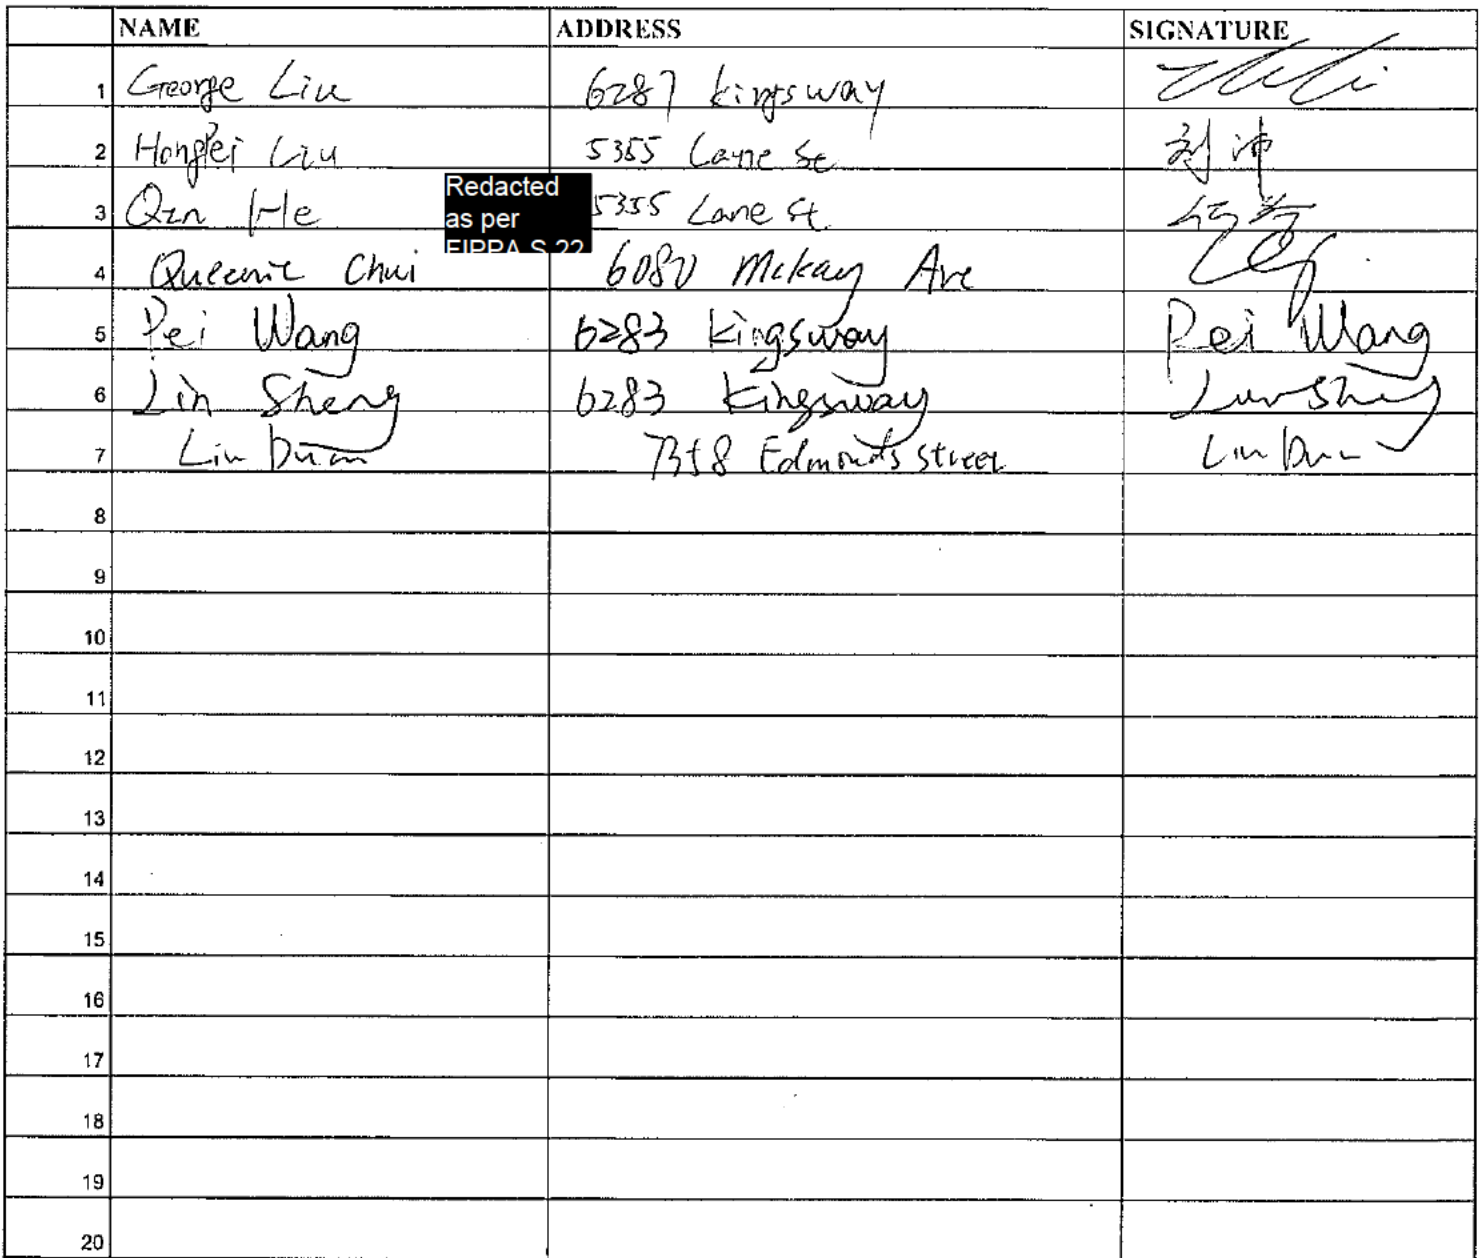 NAME ADDRESS SIGNATURE
1 George Liu 6287 kingsway
2 Hongpei Liu 5355 Lane St 刘沛
Redacted
as per
FIPPA S.22
3 Qin He 5355 Lane St.
4 Queenie Chui 6080 Mckay Ave
5 Pei Wang 6283 Kingsway Pei Wang
6 Lin Sheng 6283 Kingsway Lin Sheng
7 Lin Duan 7358 Edmonds Street Lin Duan
8
9
10
11
12
13
14
15
16
17
18
19
20